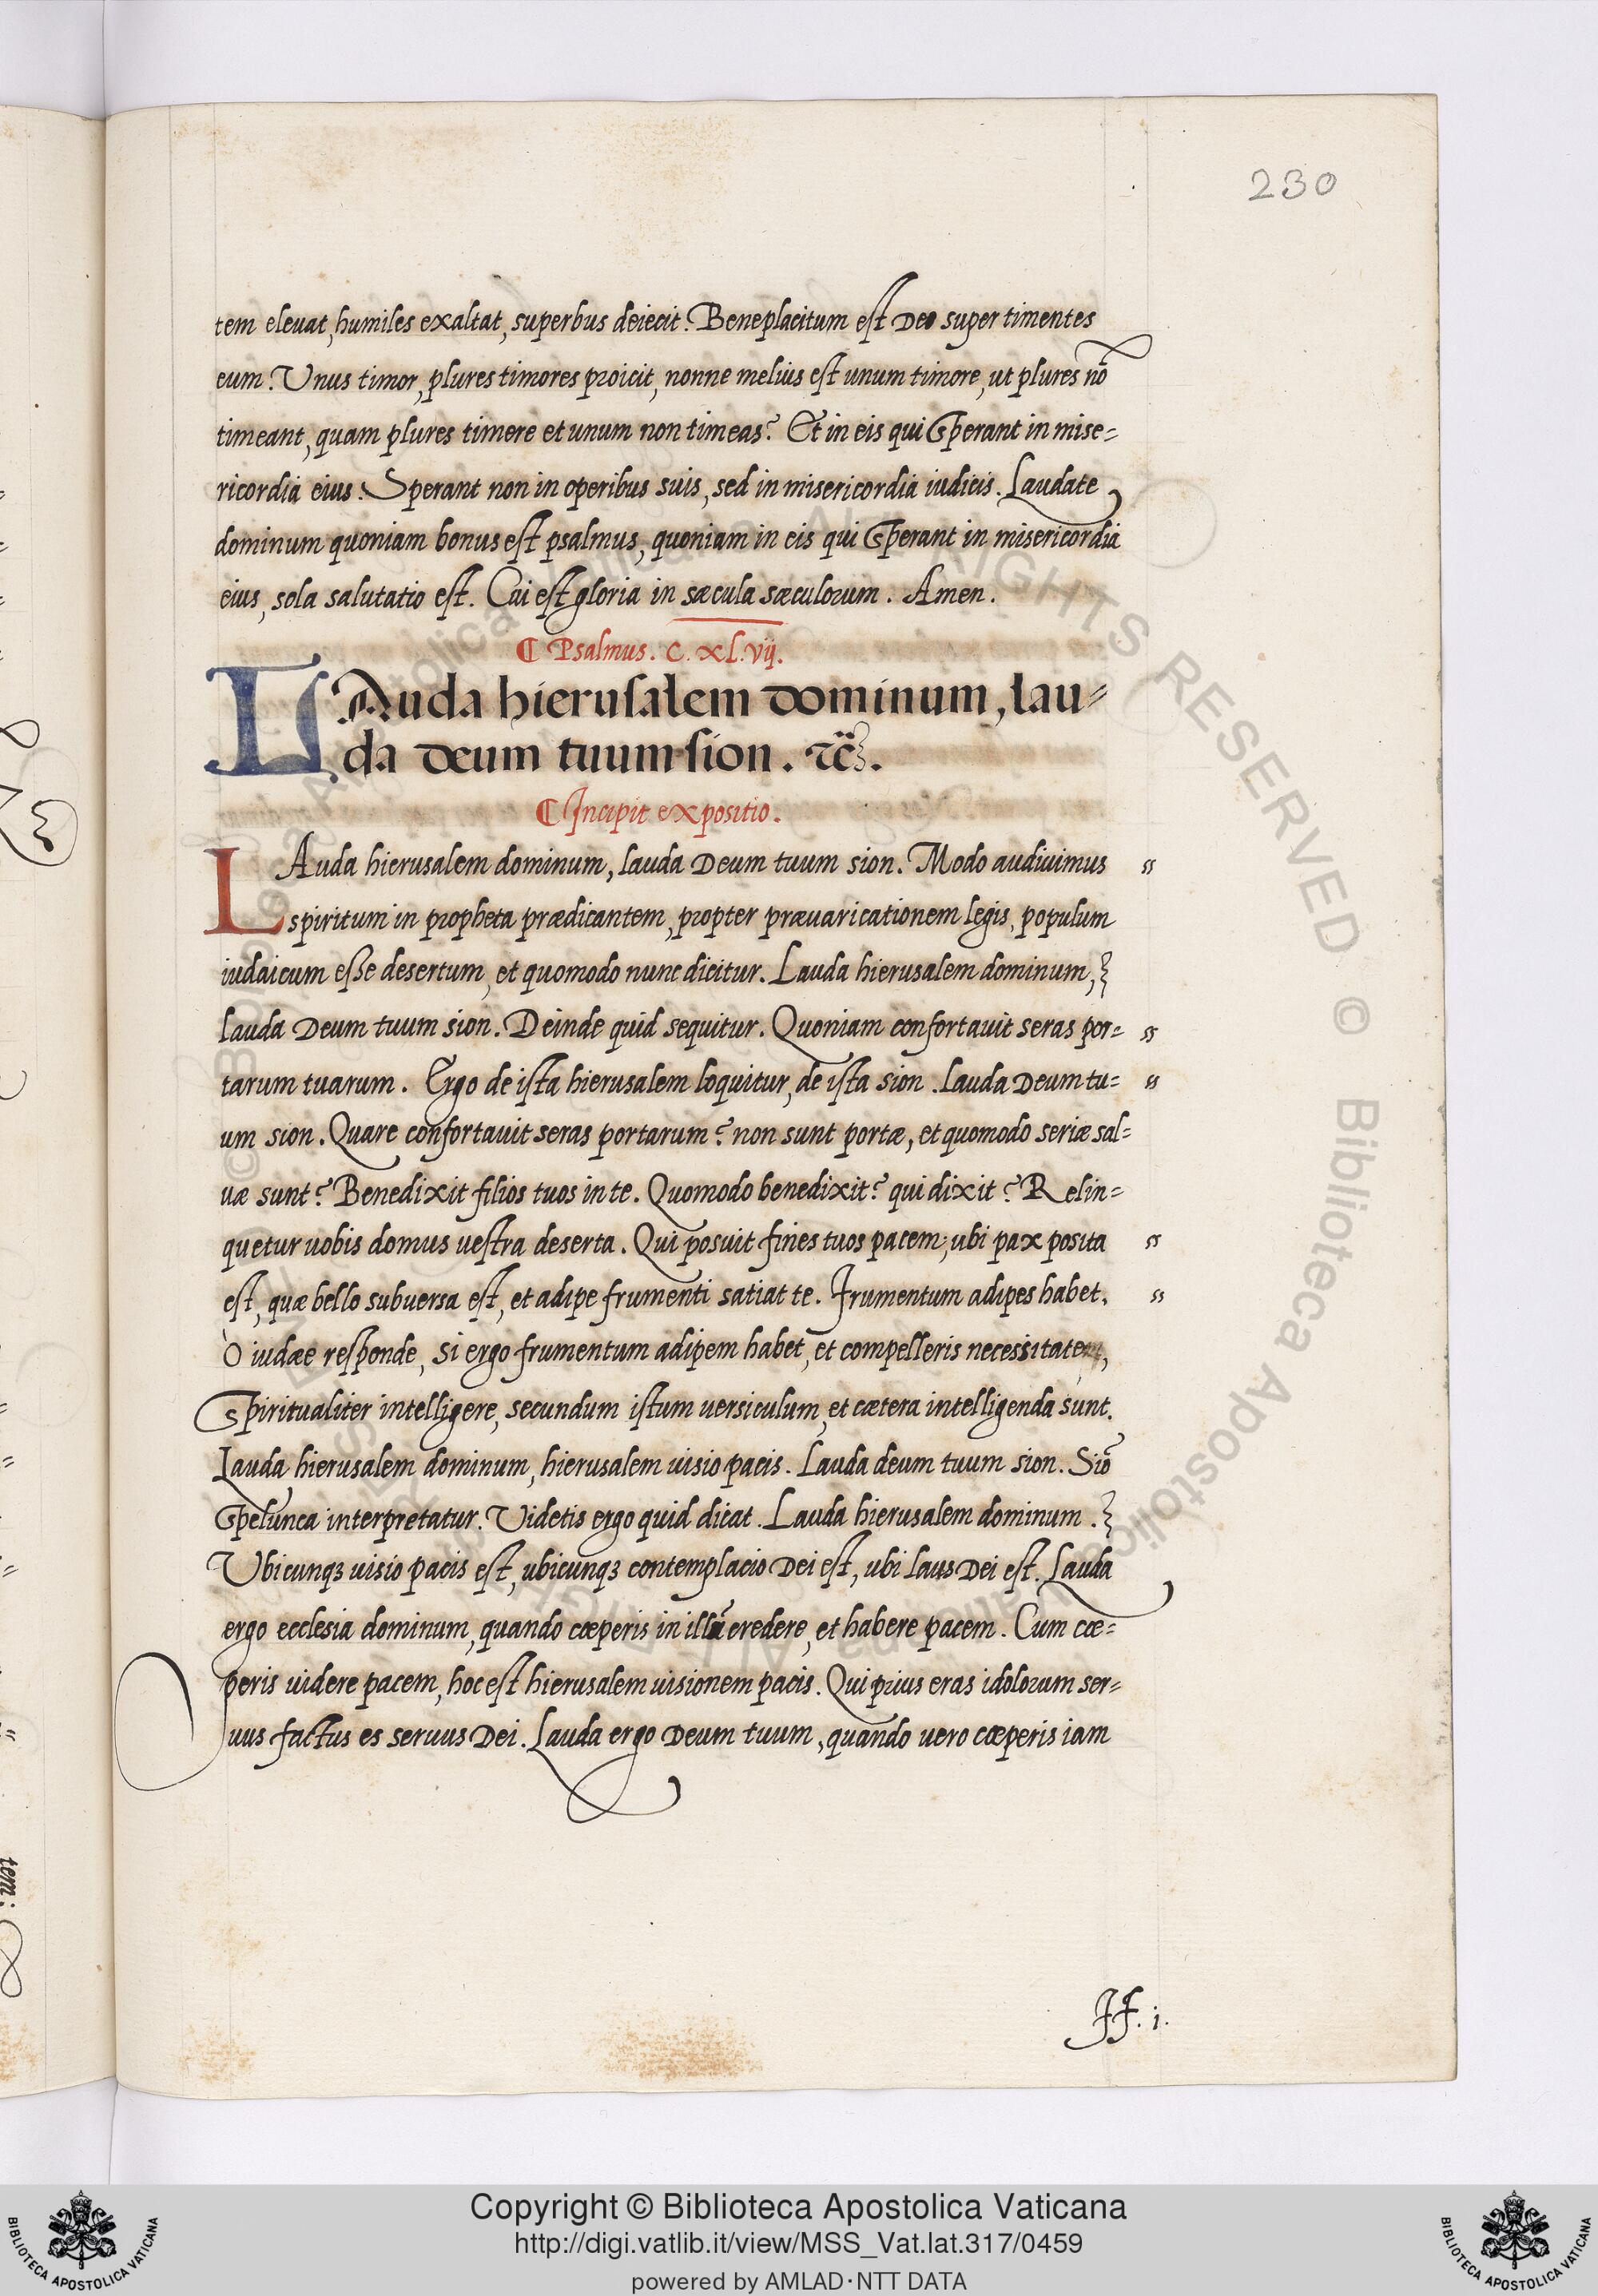 230
tem eleuat, humiles exaltat, superbus deiecit. Beneplacitum est Deo super timentes
eum. Unus timor, plures timores proicit, nonne melius est unum timore, ut plures nō
timeant, quam plures timere et unum non timeas? Et in eis qui sperant in mise=
ricordia eius. Sperant non in operibus suis, sed in misericordia iudicis. Laudate
dominum quoniam bonus est psalmus, quoniam in eis qui sperant in misericordia
eius, sola salutatio est. Cui est gloria in sæcula sæculorum. Amen.
¶ Psalmus. C. XL. vij.
LAuda hierusalem dominum, lau=
da deum tuum sion. &c̄.
¶ Incipit expositio.
LAuda hierusalem dominum, lauda Deum tuum sion. Modo audiuimus "
spiritum in propheta prædicantem, propter præuaricationem legis, populum
iudaicum esse desertum, et quomodo nunc dicitur. Lauda hierusalem dominum,
lauda Deum tuum sion. Deinde quid sequitur. Quoniam confortauit seras por= "
tarum tuarum. Ergo de ista hierusalem loquitur, de ista sion. Lauda Deum tu= "
um sion. Quare confortauit seras portarum? non sunt portæ, et quomodo seriæ sal=
uæ sunt? Benedixit filios tuos in te. Quomodo benedixit? qui dixit? Relin=
quetur uobis domus uestra deserta. Qui posuit fines tuos pacem, ubi pax posita "
est, quæ bello subuersa est, et adipe frumenti satiat te. Frumentum adipes habet. "
ò iudæe responde, si ergo frumentum adipem habet, et compelleris necessitatem,
spiritualiter intelligere, secundum istum uersiculum, et cætera intelligenda sunt.
Lauda hierusalem dominum, hierusalem uisio pacis. Lauda deum tuum sion. Siō
spelunca interpretatur. Videtis ergo quid dicat. Lauda hierusalem dominum.
Ubicunqꝫ uisio pacis est, ubicunqꝫ contemplacio Dei est, ubi laus Dei est. Lauda
ergo ecclesia dominum, quando cœperis in illū credere, et habere pacem. Cum cœ=
peris uidere pacem, hoc est hierusalem uisionem pacis. Qui prius eras idolorum ser=
uus factus es seruus Dei. Lauda ergo Deum tuum, quando uero cœperis iam
Ff. i.
tem:
Copyright © Biblioteca Apostolica Vaticana
http://digi.vatlib.it/view/MSS_Vat.lat.317/0459
powered by AMLAD·NTT DATA
BIBLIOTECA APOSTOLICA VATICANA
BIBLIOTECA APOSTOLICA VATICANA